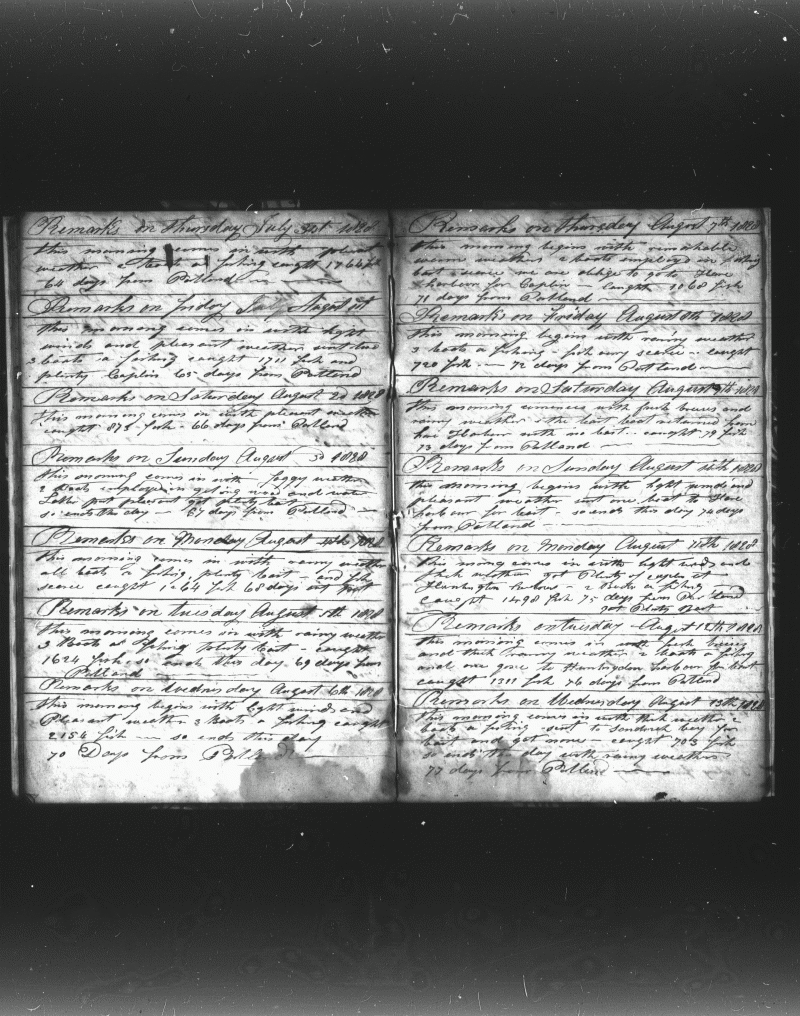 Remarks on Thursday July 31st 1828
this morning comes in with pleasent
weather 2 boats a fishing caught 1764 fish
64 days from Portland
Remarks on friday August 1st
this morning comes in with light
winds and pleasent weather
3 boats a fishing caught 1711 fish and
plenty Caplin 65 days from Portland
Remarks on Saturday August 2d 1828
this morning coms in with pleasent weather
caught 875 fish - 66 days from Portland
Remarks on Sunday August 3d 1828
this morning comes in with foggy weather
2 boats employed in getting wood and water
pleasent got plenty bait
so ends the day 67 days from Portland
Remarks on Monday August 4th 1828
this morning comes in with rainy weather
all boats a fishing plenty bait - and fish
scarce caught 1264 fish 68 days out
Remarks on tuesday August 5th 1828
this morning comes in with rainy weather
3 Boats a fishing plenty bait - caught
1624 fish so ends this day 69 days from
Portland
Remarks on Wednesday August 6th 1828
this morning begins with light winds and
Pleasant weather 3 boats a fishing caught
2154 fish - so ends this day
70 Days from Portland
Remarks on Thursday August 7th 1828
this morning begins with remarkable
warm weather 2 boats employed in fishing
bait scarce we are oblige to go to
harbour for Caplin - caught 1068 fish
71 days from Portland
Remarks on Friday August 8th 1828
this morning begins with rainy weather
3 boats a fishing - fish very scarce - caught
720 fish - 72 days from Portland
Remarks on Saturday August 9th 1828
this morning comences with fresh breses and
rainy weather the bait boat returned from
harbour with no bait - caught 79 fish
73 days from Portland
Remarks on Sunday August 10th 1828
this morning begins with light winds and
pleasant weather sent one boat to
harbour for bait - so ends this day 74 days
from Portland
Remarks on Monday August 11th 1828
this morning comes in with light winds and
weather got Plenty of caplin at
Huntington harbour - 2 Boats a fishing
caught 1498 fish 75 days from Portland
got Plenty Bait
Remarks on tuesday August 12th 1828
this morning comes in with fresh brises
and thick rainny weather 2 boats a fishing
and one gone to Huntingdon harbour for bait
caught 1311 fish 76 days from Portland
Remarks on Wednesday August 13th 1828
this morning comes in with thick weather 2
boats a fishing sent to Sandwich bay for
bait and got none - caught 703 fish
so ends this day with rainy weather
77 days from Portland